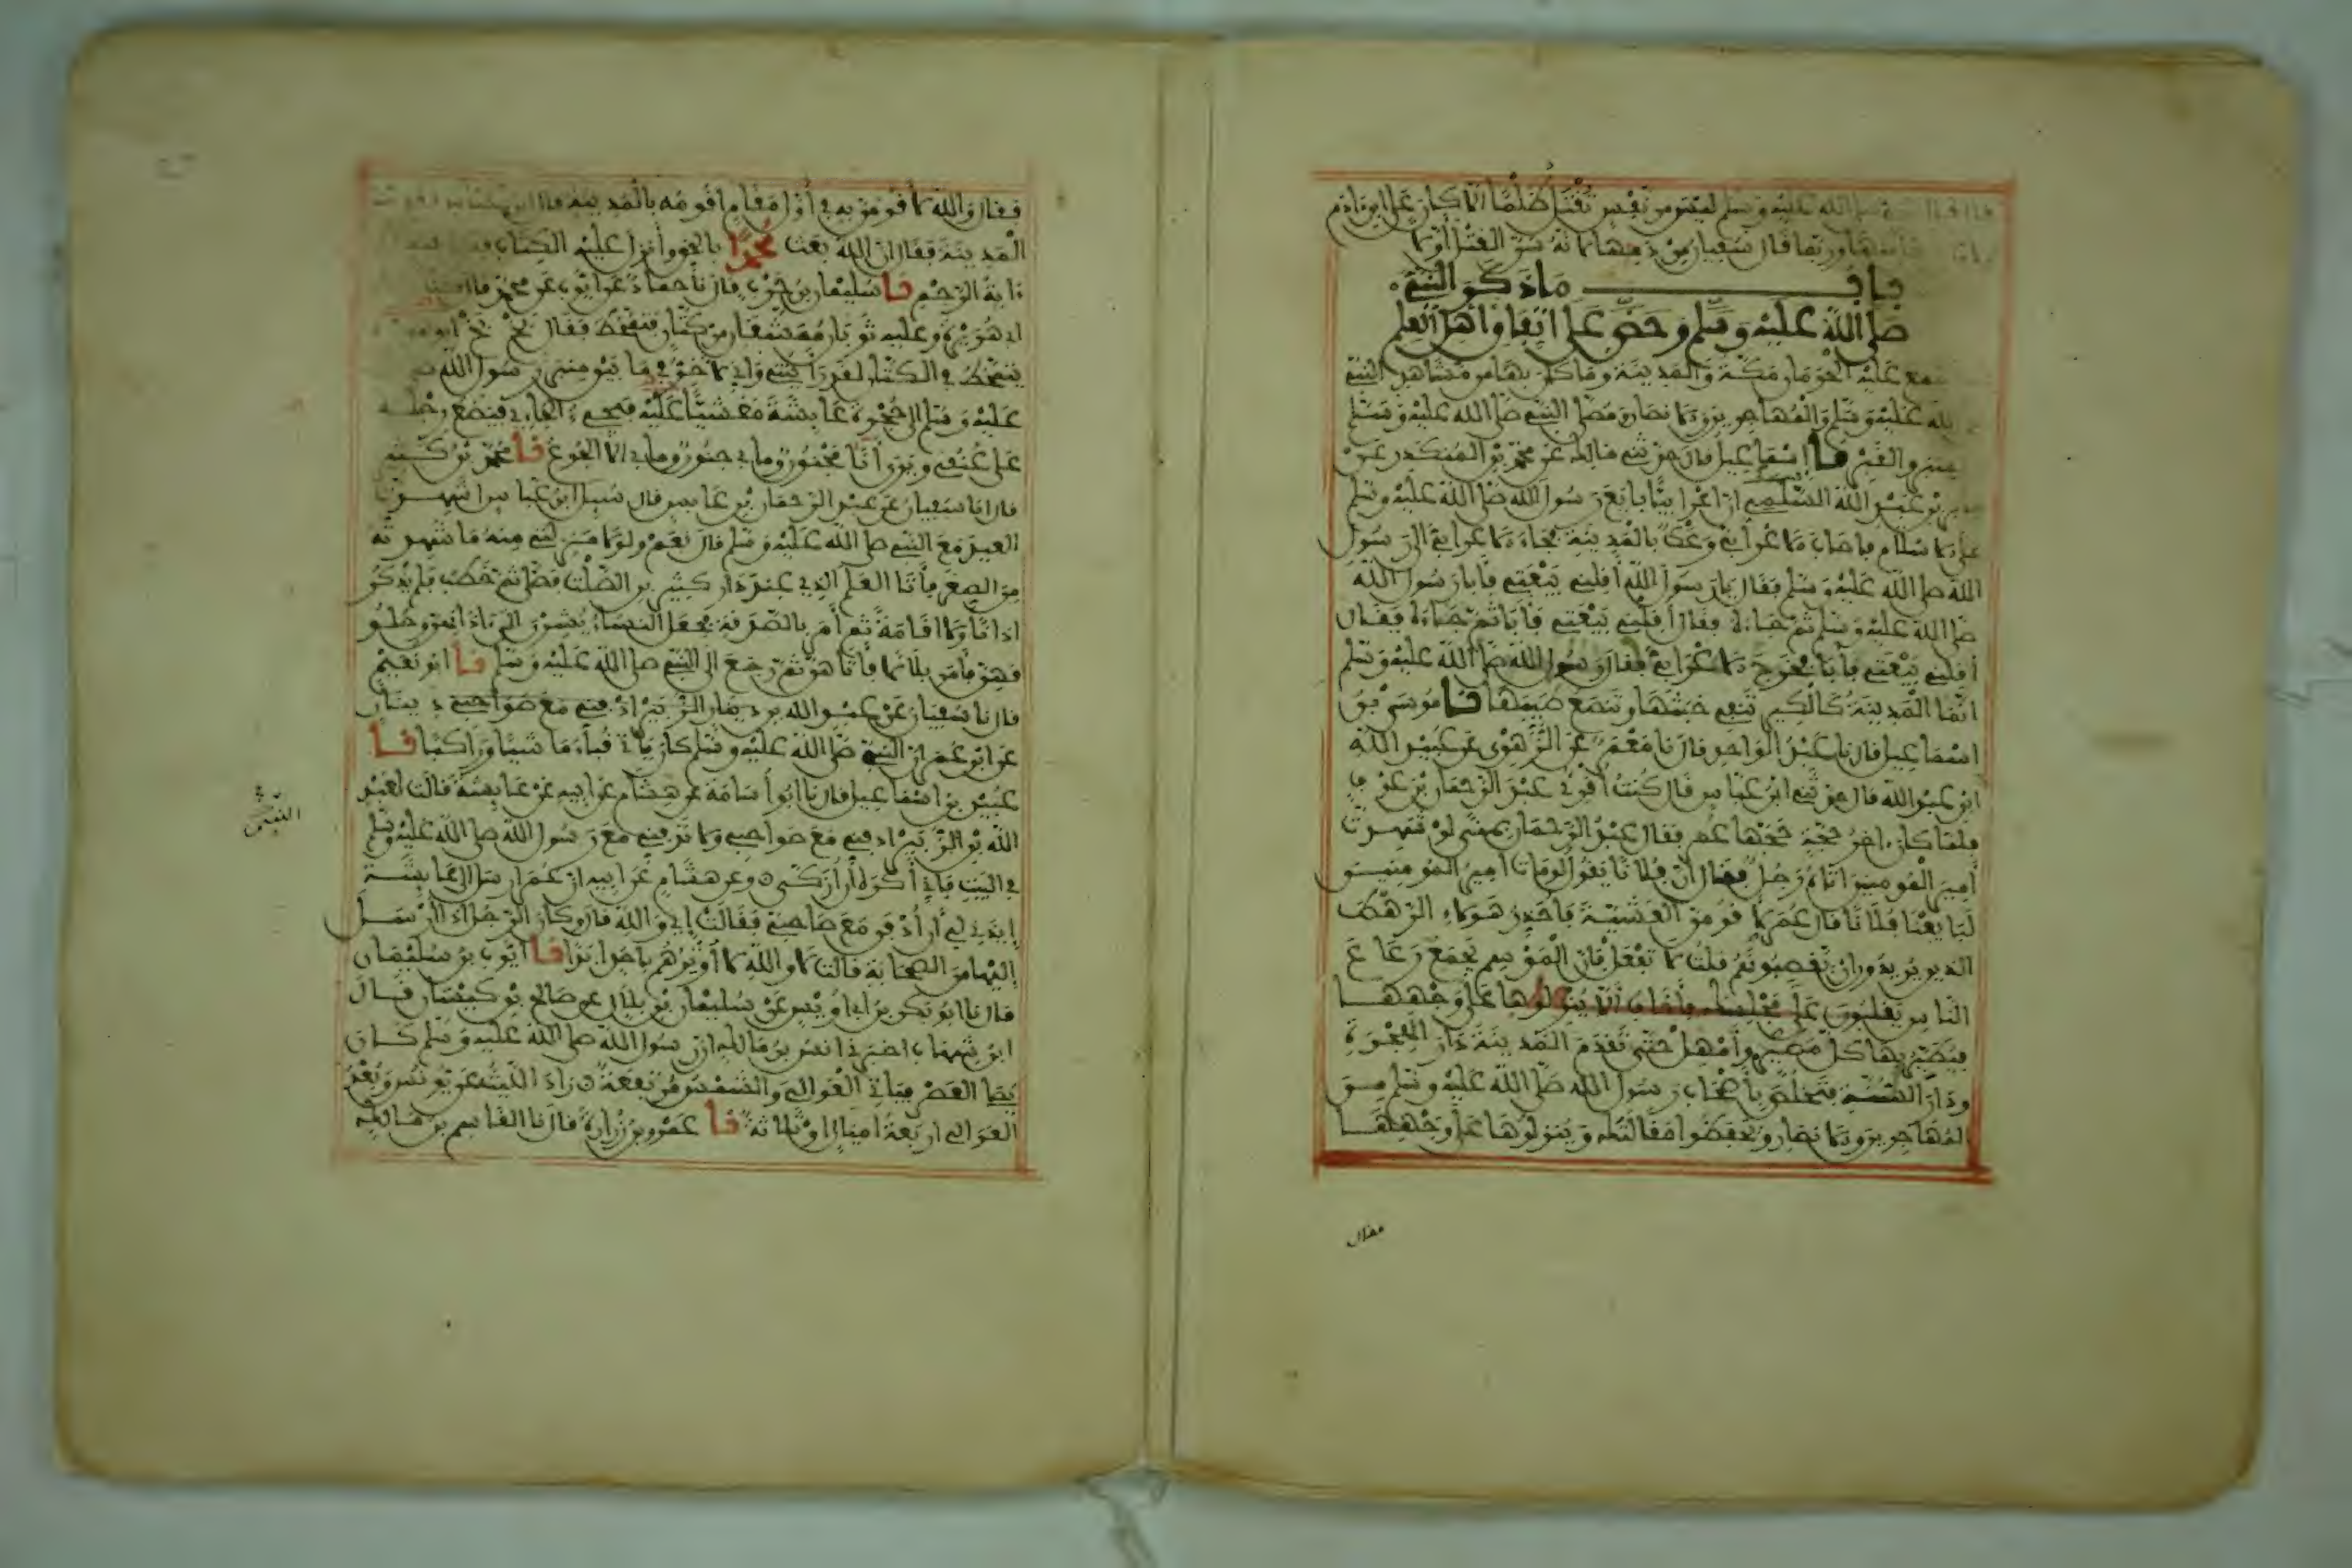 قال قال النبي صلى الله عليه وسلم ليس من نفس تقتل ظلما الا كان على ابن ءادم
منها وربما قال سفيان من دمها لانه سن القتل أولا
باب ما ذكر النبي
صلى الله عليه وسلم وحض على اتفاق اهل العلم
عليه الحرمان مكة والمدينة وما كان بها من مشاهد النبي
الله عليه وسلم والمهاجرين والانصار ومصلى النبي صلى الله عليه وسلم
والمنبر نا إسماعيل قال حدثني مالك عن محمد بن المنكدر عن
بن عبد الله السلمي أن اعرابيا بايع رسول الله صلى الله عليه وسلم
على الاسلام فاصاب الاعرابي وعك بالمدينة فجاء الاعرابي الى رسول
الله صلى الله عليه وسلم فقال يا رسول الله أقلني بيعتي فابا رسول الله
صلى الله عليه وسلم ثم جاءه فقال أقلني بيعتي فأبا ثم جاءه فقال
أقلني بيعتي فأبا فخرج الاعرابي فقال رسول الله صلى الله عليه وسلم
انما المدينة كالكير تنفي خبثها وتنصع طيبها نا موسى بن
اسماعيل قال نا عبد الواحد قال نا معمر عن الزهري عن عبيد الله
ابن عبد الله قال حدثني ابن عباس قال كنت أقرئ عبد الرحمان بن عوف
فلما كان ءاخر حجة حجها عمر فقال عبد الرحمان بمنى لو شهدت
أمير المومنين اتاه رجل فقال ان فلانا يقول لو مات امير المومنين
لبايعنا فلانا قال عمر لأقومن العشية فأحذر هؤلاء الرهط
الذين يريدون ان يغصبوهم قلت لا تفعل فان الموسم يجمع رعاع
الناس يغلبون على مجلسك فأخاف ألا ينزلوها على وجهها
فيطير بها كل مطير وأمهل حتى تقدم المدينة دار الهجرة
ودار السنة فتخلص بأصحاب رسول الله صلى الله عليه وسلم من
المهاجرين والانصار ويحفظوا مقالتك وينزلوها على وجهها
فقال
فقال والله لأقومن به في أول مقام أقومه بالمدينة قال ابن عباس
المدينة فقال ان الله بعث محمدا بالحق وأنزل عليه الكتاب
ءاية الرجم نا سليمان بن حرب قال نا حماد عن ايوب عن محمد قال كنا
ابي هريرة وعليه ثوبان ممشقان من كتان فتمخط فقال بخ بخ ابو
يتمخط في الكتان لقد رأيتني واني لأخر في ما بين منبر رسول الله
عليه وسلم الى حجرة عائشة مغشيا عليه فيجيء الجاءي فيضع رجله
على عنقي ويرى أنا مجنون وما بي جنون وما بي الا الجوع نا محمد بن كثير
قال انا سفيان عن عبد الرحمان بن عابس قال سئل ابن عباس اشهدت
العيد مع النبي صلى الله عليه وسلم قال نعم ولولا منزلتي منه ما شهدته
من الصغر فأتا العلم الذي عند دار كثير بن الصلت فصلى ثم خطب فلم يذكر
اذانا ولا اقامة ثم أمر بالصدقة فجعل النساء يشرن الى ءاذانهن وحلو
قهن فأمر بلالا فأتاهن ثم رجع الى النبي صلى الله عليه وسلم نا ابو نعيم
قال نا سفيان عن عبد الله بن دينار
عن ابن عمر ان النبي صلى الله عليه وسلم كان ياتي قباء ماشيا وراكبا نا
عبيد بن اسماعيل قال نا ابو أسامة عن هشام عن ابيه عن عائشة قالت لعبد
الله بن الزبير ادفني مع صواحبي ولا تدفني مع رسول الله صلى الله عليه وسلم
في البيت فاني أكره أن أزكى وعن هشام عن ابيه ان عمر ارسل الى عائشة
إيذني لي أن أدفن مع صاحبي فقالت إي والله قال وكان الرجل اذا أرسل
إليها من الصحابة قالت لا والله لا أوثرهم بأحد ابدا نا ايوب بن سليمان
قال نا ابو بكر بن ابي أويس عن سليمان بن بلال عن صالح بن كيسان قال
ابن شهاب اخبرني انس بن مالك ان رسول الله صلى الله عليه وسلم كان
يصلي العصر فياتي العوالي والشمس مرتفعة زاد الليث عن يونس وبعد
العوالي اربعة اميال او ثلاثة نا عمرو بن زرارة قال نا القاسم بن مالك